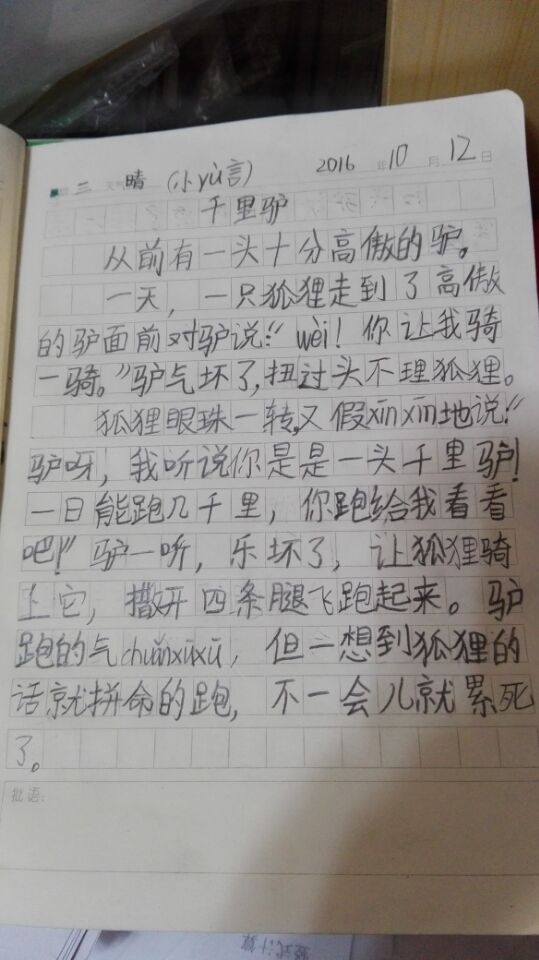 三 天气 晴 (小yù言) 2016 年 10 月 12 日
千里驴
从前有一头十分高傲的驴。
一天，一只狐狸走到了高傲
的驴面前对驴说："wèi！你让我骑
一骑。"驴气坏了,扭过头不理狐狸。
狐狸眼珠一转,又假xīnxīn地说："
驴呀，我听说你是是一头千里驴！
一日能跑几千里，你跑给我看看
吧！"驴一听，乐坏了，让狐狸骑
上它，撒开四条腿飞跑起来。驴
跑的气chuǎnxūxū，但一想到狐狸的
话就拼命的跑，不一会儿就累死
了。
批语：